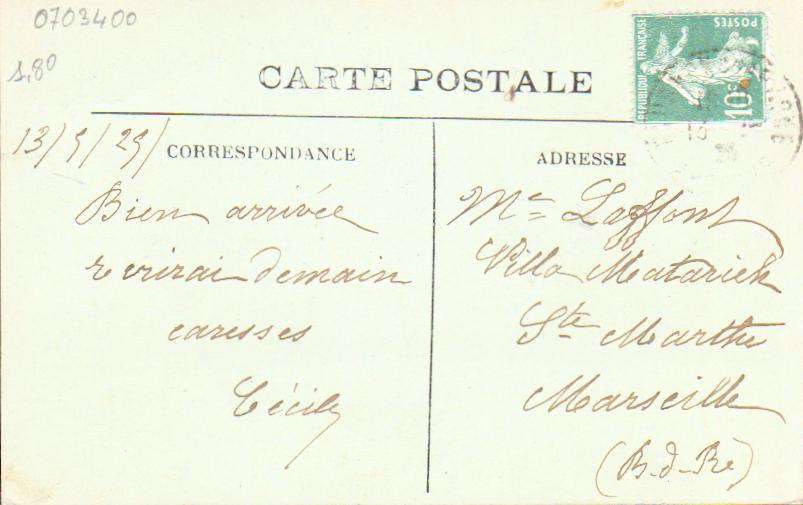 0703400
1,80
CARTE POSTALE
RÉPUBLIQUE FRANÇAISE
POSTES
10c
13/9/25/
CORRESPONDANCE
Bien arrivée
écrirai demain
caresses
Cécile
ADRESSE
Me Laffont
Villa Matarieh
Ste Marthe
Marseille
(B-d-Re)